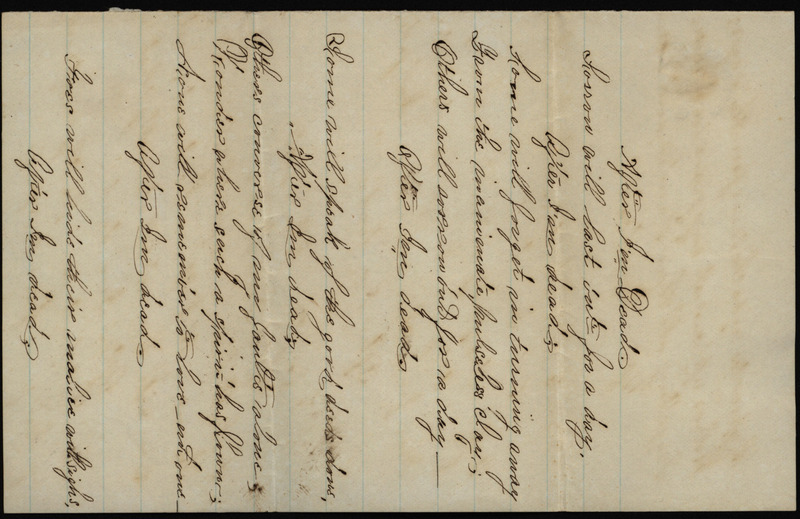 After I'm Dead.
Sorrow will last out for a day,
After I'm dead;
Some will forget in turning away
From the inanimate pulseless clay;
Others will sorrow but for a day—
After I'm dead.
Some will speak of the good deeds done,
After I'm dead;
Others converse of my faults alone;
Wonder where such a spirit has flown;
None will remember to love — not one—
After I'm dead.
Foes will hide their malice with sighs,
After I'm dead;